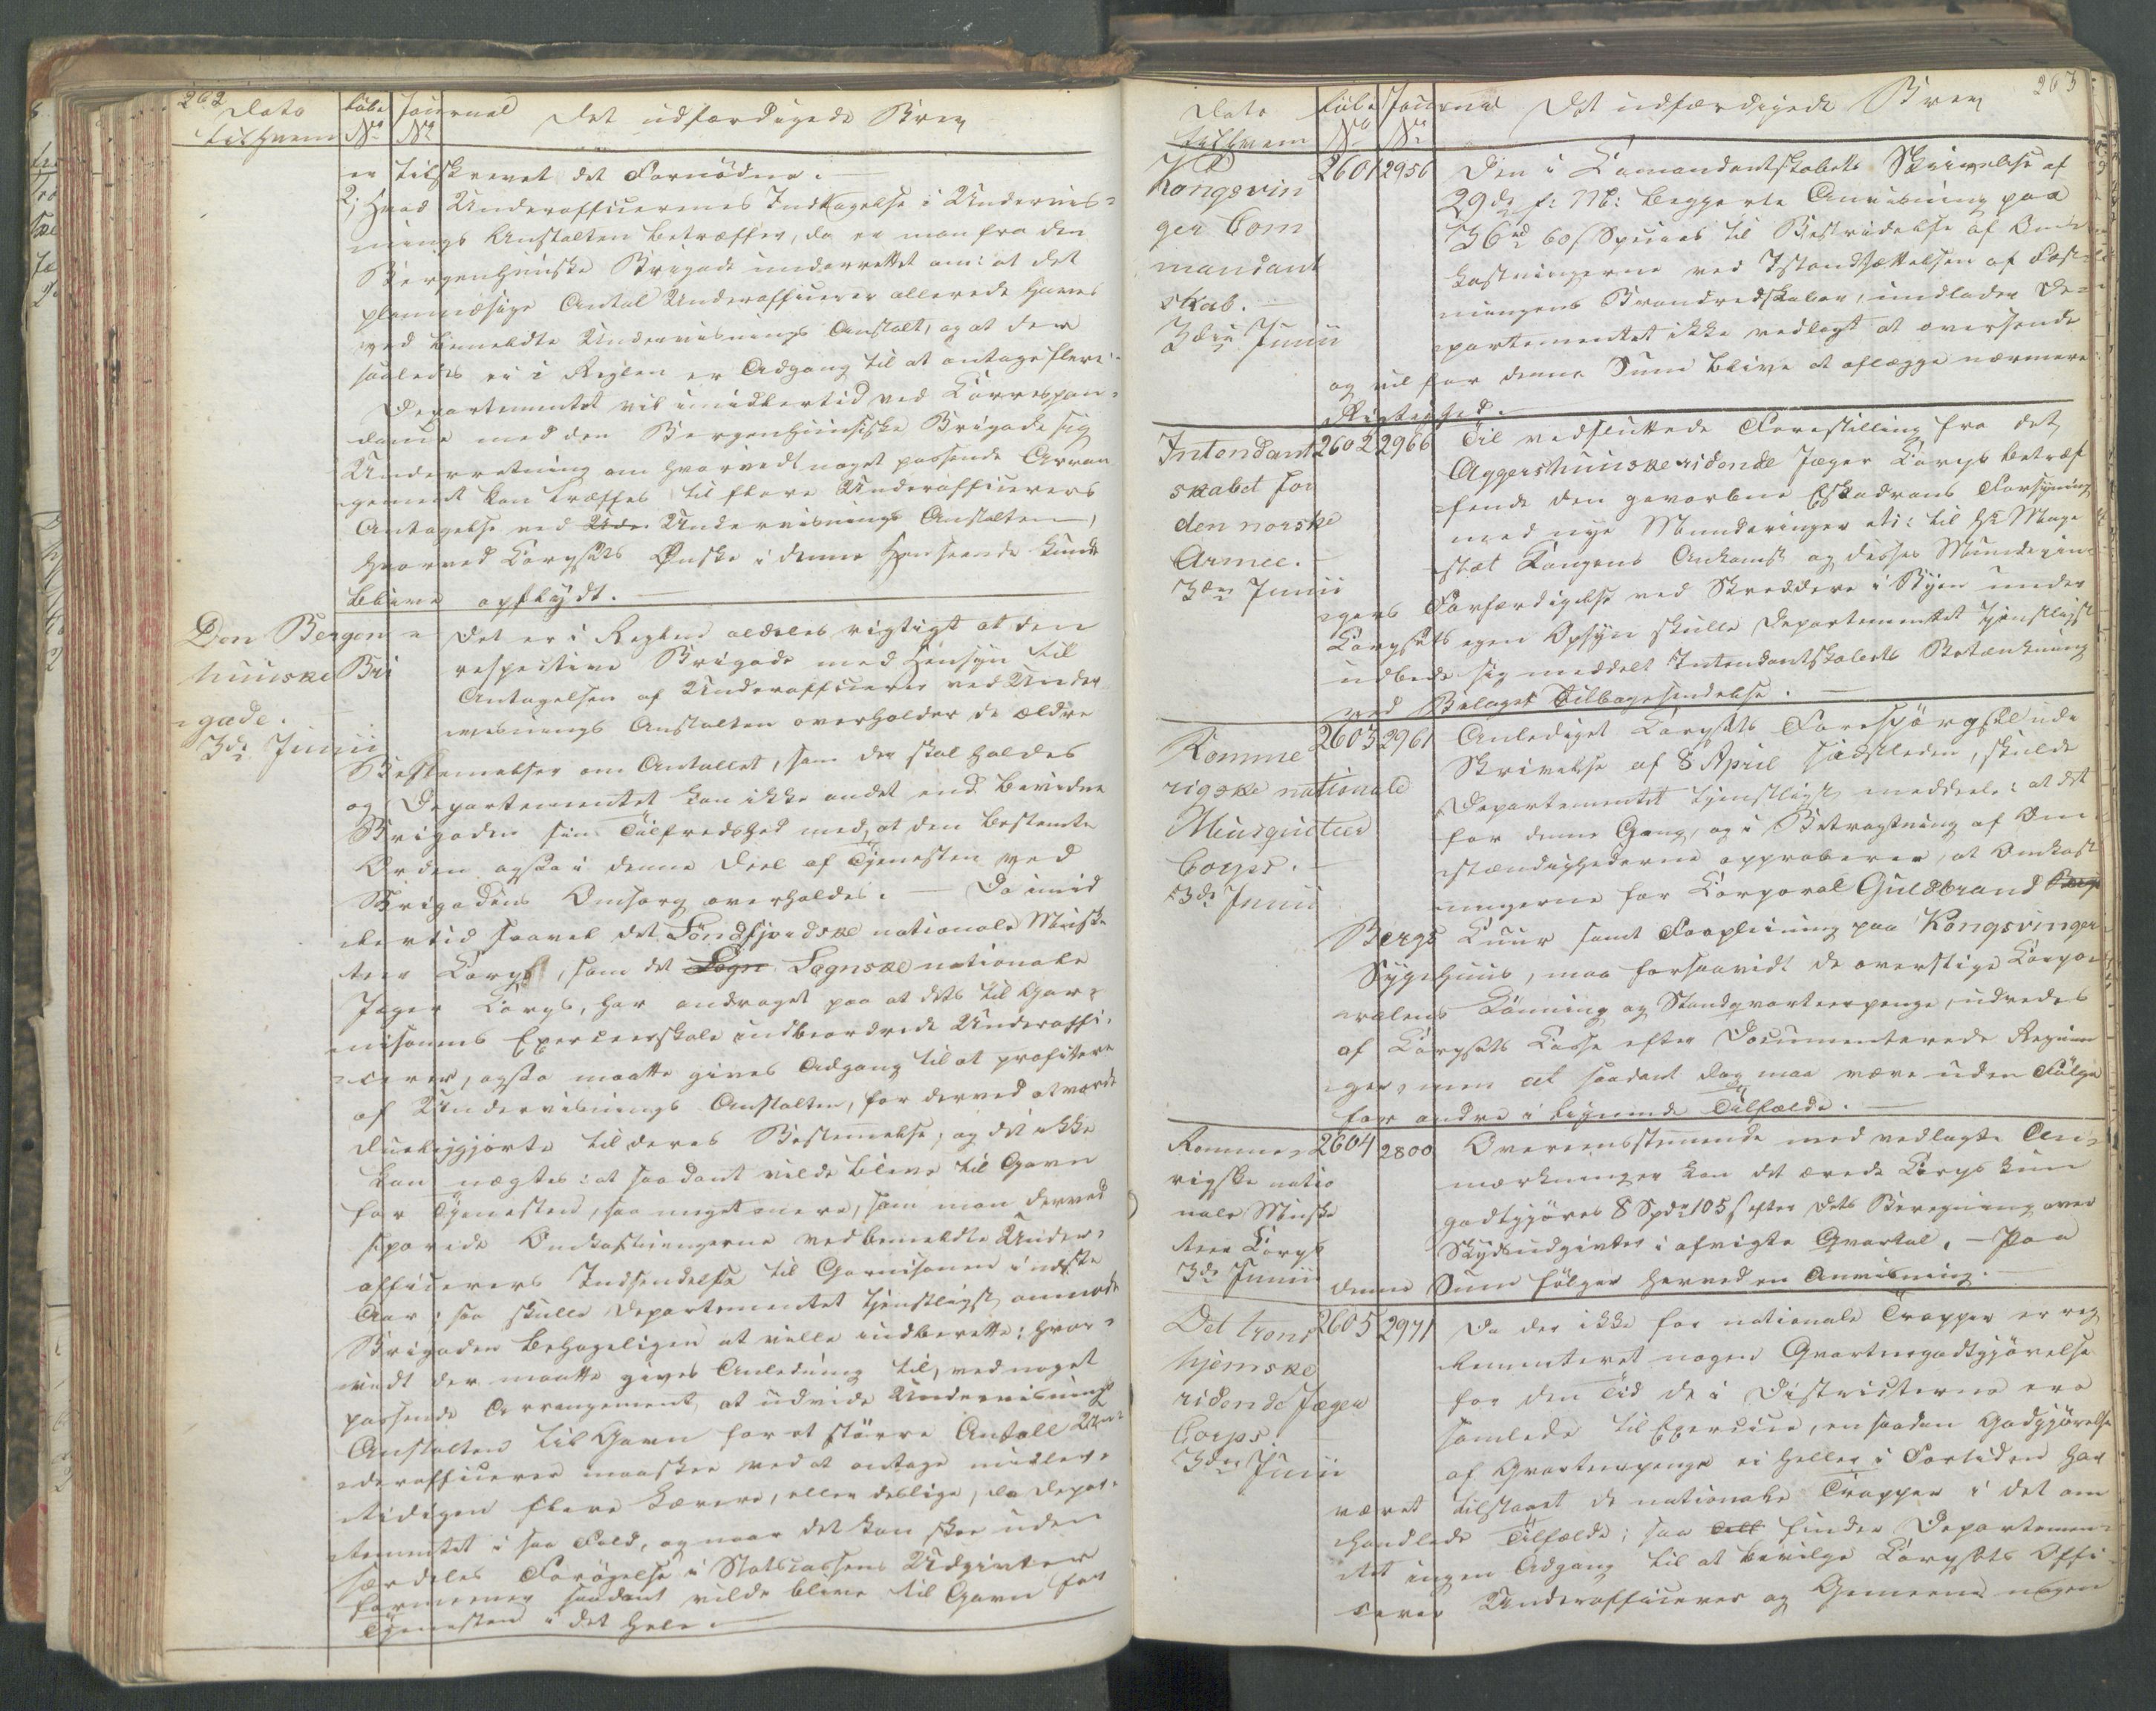 262
Dato
til hvem
Löbe
No
Journal
No
Det udfærdigede Brev
er tilskrevet det Fornödne.
2, Hvad Underofficerernes Indtagelse i Undervis-
nings Anstalten betræffer, da er man fra den
Bergenhuuske Brigade underrettet om: at det
planmæsige Antal Underofficerer allerede haves
ved bemeldte Undervisnings Anstalt, og at der
saaledes ei i Reglen er Adgang til at antage flere.
Departementet vil imidlertid ved Correspon-
dence med den Bergenhuusiske Brigade sig
Underretning om hvorvidt noget passende Arran
gement kan træffes til flere Underofficerers
Antagelse ved Undervisnings Anstalten,
hvorved Corpsets Ønske i denne Henseende kunde
blive opfyldt.
Den Bergen-
huuske Bri
gade.
3de Junii
Det er i Reglen aldeles rigtigt at den
respective Brigade med Hensyn til
Antagelsen af Underofficerer ved Under
visnings Anstalten overholder de ældre
Bestemelser om Antallet, som der skal holdes
og Departementet kan ikke andet end bevidne
Brigaden sin Tilfredshed med, at den bestemte
Orden ogsaa i denne Deel af Tjenesten ved
Brigadens Omsorg overholdes. Da imid
lertid saavel det Söndfjordske nationale Muske
teer Corps, som det Sogn Sognske nationale
Jæger Corps, har andraget paa at dets til Gar-
nisonens Exerceerskole indbeordrede Underoffi-
cerer, ogsaa maatte gives Adgang til at profitere
af Undervisnings Anstalten, for derved at vorde
dueliggjorte til deres Bestemmelse, og det ikke
kan nægtes: at saadant vilde blive til Gavn
for Tjenesten, saa meget mere, som man derved
sparede Omkostningerne ved bemeldte Under-
officerers Indsendelse til Garnisonen i næste
Aar; saa skulle Departementet tjenstligst anmode
Brigaden behageligen at ville indberette: hvor-
vidt der maatte gives Anledning til, ved noget
passende Arrangement at udvide Undervisnings
Anstalten til Gavn for et större Antall Un-
derofficerer maaskee ved at antage midler-
tidigen flere Lærere, eller deslige, da Depar-
tementet i saa Fald, og naar det kan skee uden
særdeles Forögelse i Statscassens Udgivter
formener saadant vilde blive til Gavn for
Tjenesten i det Hele.
263
Dato
til hvem
Löbe
No
Journal
No
Det udfærdigede Brev
Kongsvin
ger Com
mandant
skab.
3die Junii
2601 2956
Den i Comandantskabets Skrivelse af
29de f: M: begjerte Anvisning paa
60 s Species til Bestridelse af Om-
kostningerne ved Istandsættelsen af Fæst-
ningens Brandredskaber, undlader De-
partementet ikke vedlagt at oversende
og vil for denne Sum blive at aflægge nærmere
Rigtighed.
Intendant
skabet for
den norske
Armee.
3die Junii
2602 2966
Til vedsluttede Forestilling fra det
Aggershuuske ridende Jæger Corps betræf
fende den gevorbne Eskadrons Forsyning
med nye Munderinger etc: til Hs Maye
stæt Kongens Ankomst og disses Munderin
gers Forfærdigelse ved Skreddere i Byen under
Corpsets egen Opsyn skulle Departementet tjenstligst
udbede sig meddelt Intendantskabets Betænkning
med Bilagets Tilbagesendelse.
Romme
rigske nationale
Musquetier
Corps.
3de Junii
2603 2961
Anlediget Corpsets Forespörgsel udi
Skrivelse af 8 April sidstleden, skulde
Departementet tjenstligst meddele: at det
for denne Gang, og i Betragtning af Om
stændighederne approberer, at Omkost
ningerne for Corporal Guldbrand
Bergs Cuur samt Forpleining paa Kongsvinger
Sygehuus, maa forsaavidt de overstige Corpo-
ralens Lönning og Standqvarteerpenge, udredes
af Corpsets Casse efter Documenterede Regnin
ger, men at saadant dog maa være uden Fölge
for andre i lignende Tilfælde.
Romme-
rigske natio
nale Muske
teer Corps
3de Junii
2604 2800
Overeensstemmende med vedlagte An-
mærkninger kan det ærede Corps kun
godtgjöres 8 Spdr 105 s efter dets Beregning over
Skydsudgivter i afvigte Qvartal. - Paa
denne Sum fölger herved en Anvisning.
Det trond
hjemske
ridende Jæger
Corps.
3die Junii
2605 2971
Da der ikke for nationale Tropper er reg
lementeret nogen Qvarteergodtgjörelse
for den Tid de i Districterne ere
samlede til Exercice, en saadan Godtgjörelse
af Qvarteerpenge ei heller i Fortiden har
været tilstaaet de nationale Tropper i det om
handlede Tilfælde; saa finder Departemen-
tet ingen Adgang til at bevilge Corpsets Offi
cerer Underofficerer og Gemeene nogen